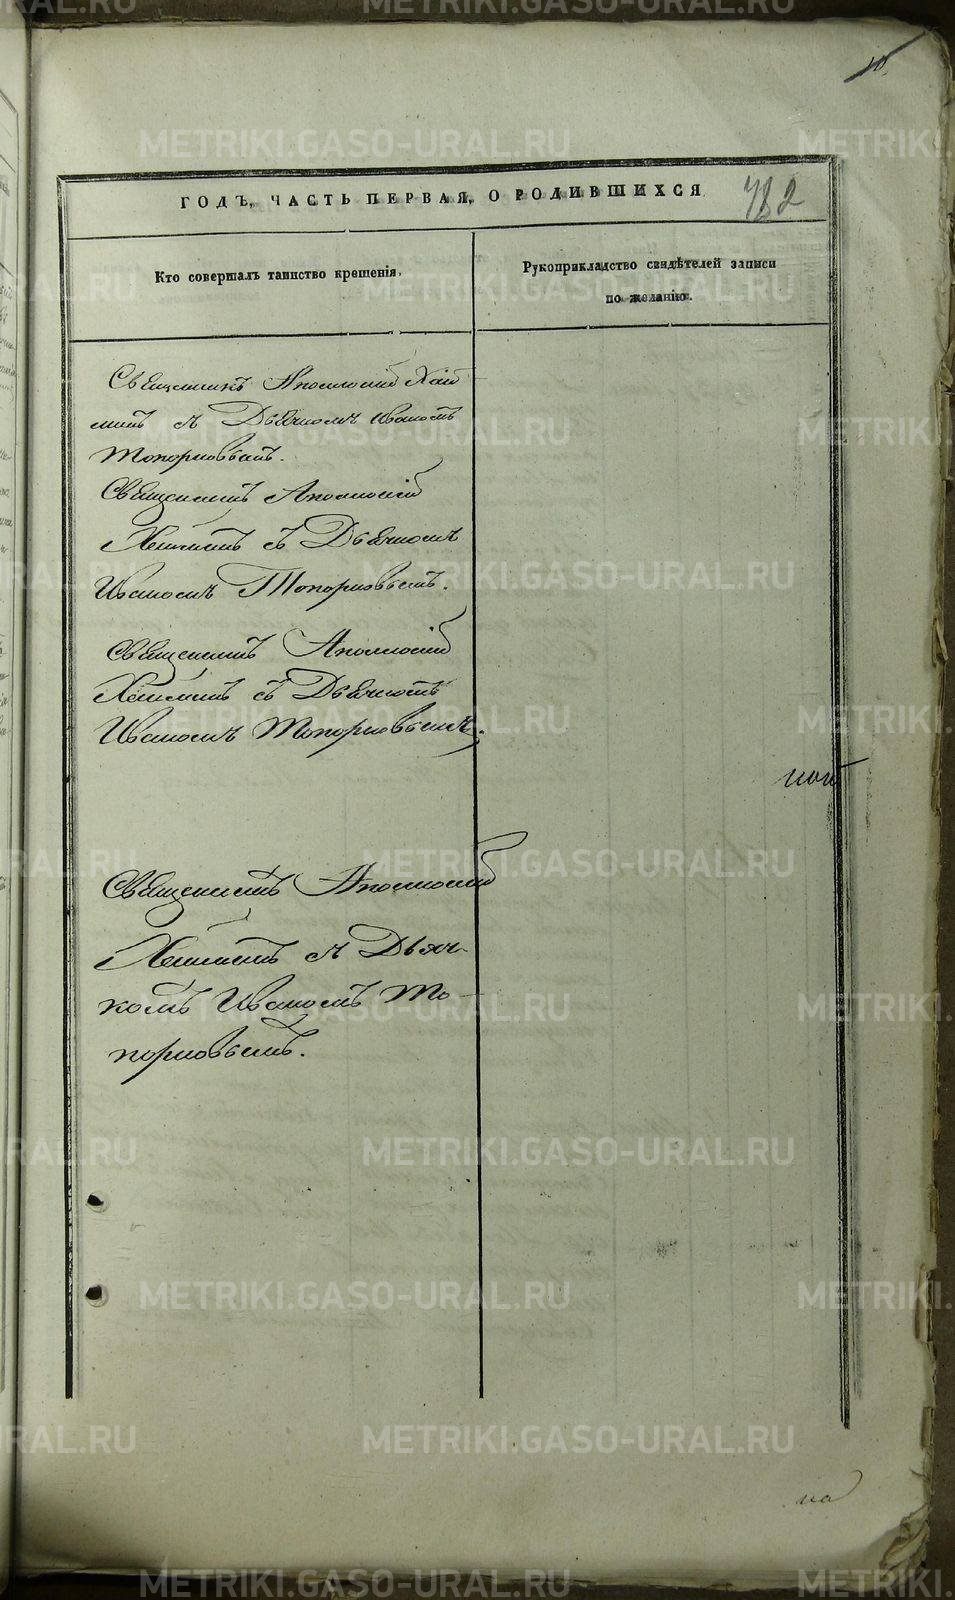 782
ГОДЪ, ЧАСТЬ ПЕРВАЯ, О РОДИВШИХСЯ
Кто совершалъ таинство крещенія.
Рукоприкладство свидѣтелей записи
по желанію.
Священникъ Аполлоній
съ Дьячкомъ Иваномъ
Топорковымъ.
Священникъ Аполлоній
съ Дьячкомъ
Иваномъ Топорковымъ.
Священникъ Аполлоній
съ Дьячкомъ
Иваномъ Топорковымъ.
Священникъ Аполлоній
съ Дьяч-
комъ Иваномъ То-
порковымъ.
на
METRIKI.GASO-URAL.RU